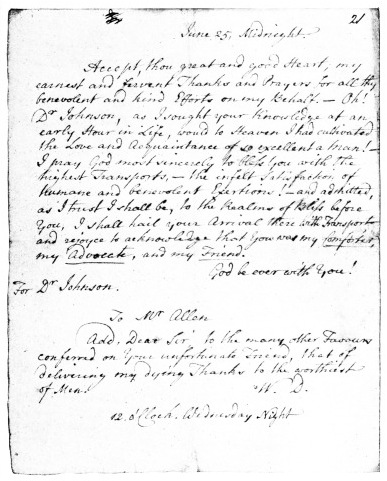 21
June 25, Midnight.
Accept, thou great and good Heart, my
earnest and fervent Thanks and Prayers for all thy
benevolent and kind Efforts on my Behalf. — Oh!
Dr Johnson, as I sought your Knowledge at an
early Hour in Life, would to Heaven I had cultivated
the Love and Acquaintance of so excellent a Man! —
I pray God most sincerely to bless you with the
highest Transports, — the infelt Satisfaction of
humane and benevolent Exertions! — and admitted,
as I trust I shall be, to the Realms of Bliss before
You, I shall hail your Arrival there with Transports
and rejoyce to acknowledge that You was my Comforter,
my Advocate, and my Friend.
God be ever with You!
For Dr Johnson.
To Mr Allen
Add, Dear Sir, to the many other Favours
conferred on Your unfortunate Friend, that of
delivering my dying Thanks to the worthiest
of Men.
W. D.
12 o'Clock. Wednesday Night